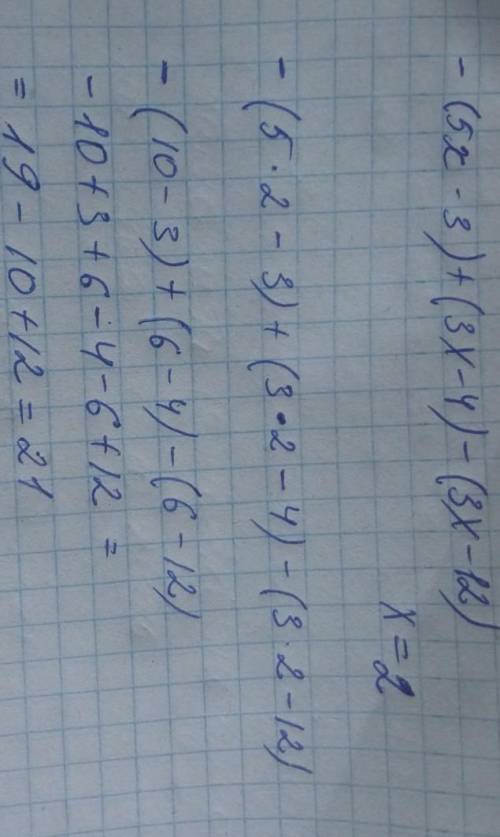 - (5x - 3) + (3x - 4) - (3x - 12)
x = 2
- (5 · 2 - 3) + (3 · 2 - 4) - (3 · 2 - 12)
- (10 - 3) + (6 - 4) - (6 - 12)
- 10 + 3 + 6 - 4 - 6 + 12 =
= 19 - 10 + 12 = 21